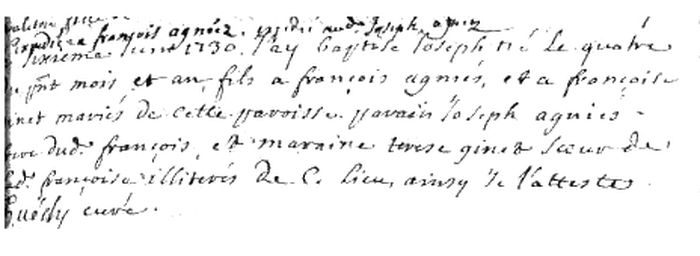 françois agniez. Joseph agniez
sixieme juin 1730. J'ay baptisé Joseph né le quatre
pñt mois et an, fils a françois agniés, et a françoise
ginet mariés de cette paroisse. parain Joseph agniés
frere dud. françois, et maraine terese ginet sœur de
lad. françoise illiterés de ce lieu, ainsy je l'atteste
curé.